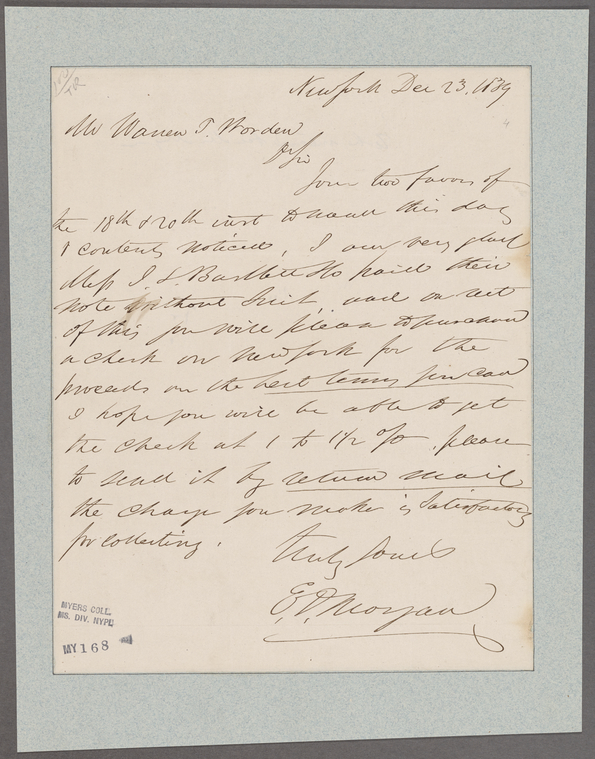 New York Dec 23. 1839
Mr Warren T. Worden
Dr Sir
Your two favors of
the 18th & 20th inst to hand this day
& contents noticed, I am very glad
Mess J. S. Bartlett & Co paid their
note without suit, and on rect
of this you will please to purchase
a check on New York for the
proceeds on the best terms you can
I hope you will be able to get
the check at 1 to 1½ %, please
to send it by return mail
the charge you make is satisfactory
for collecting.
Truly Yours
E. D. Morgan
MYERS COLL.
MS. DIV. NYPL
MY 168